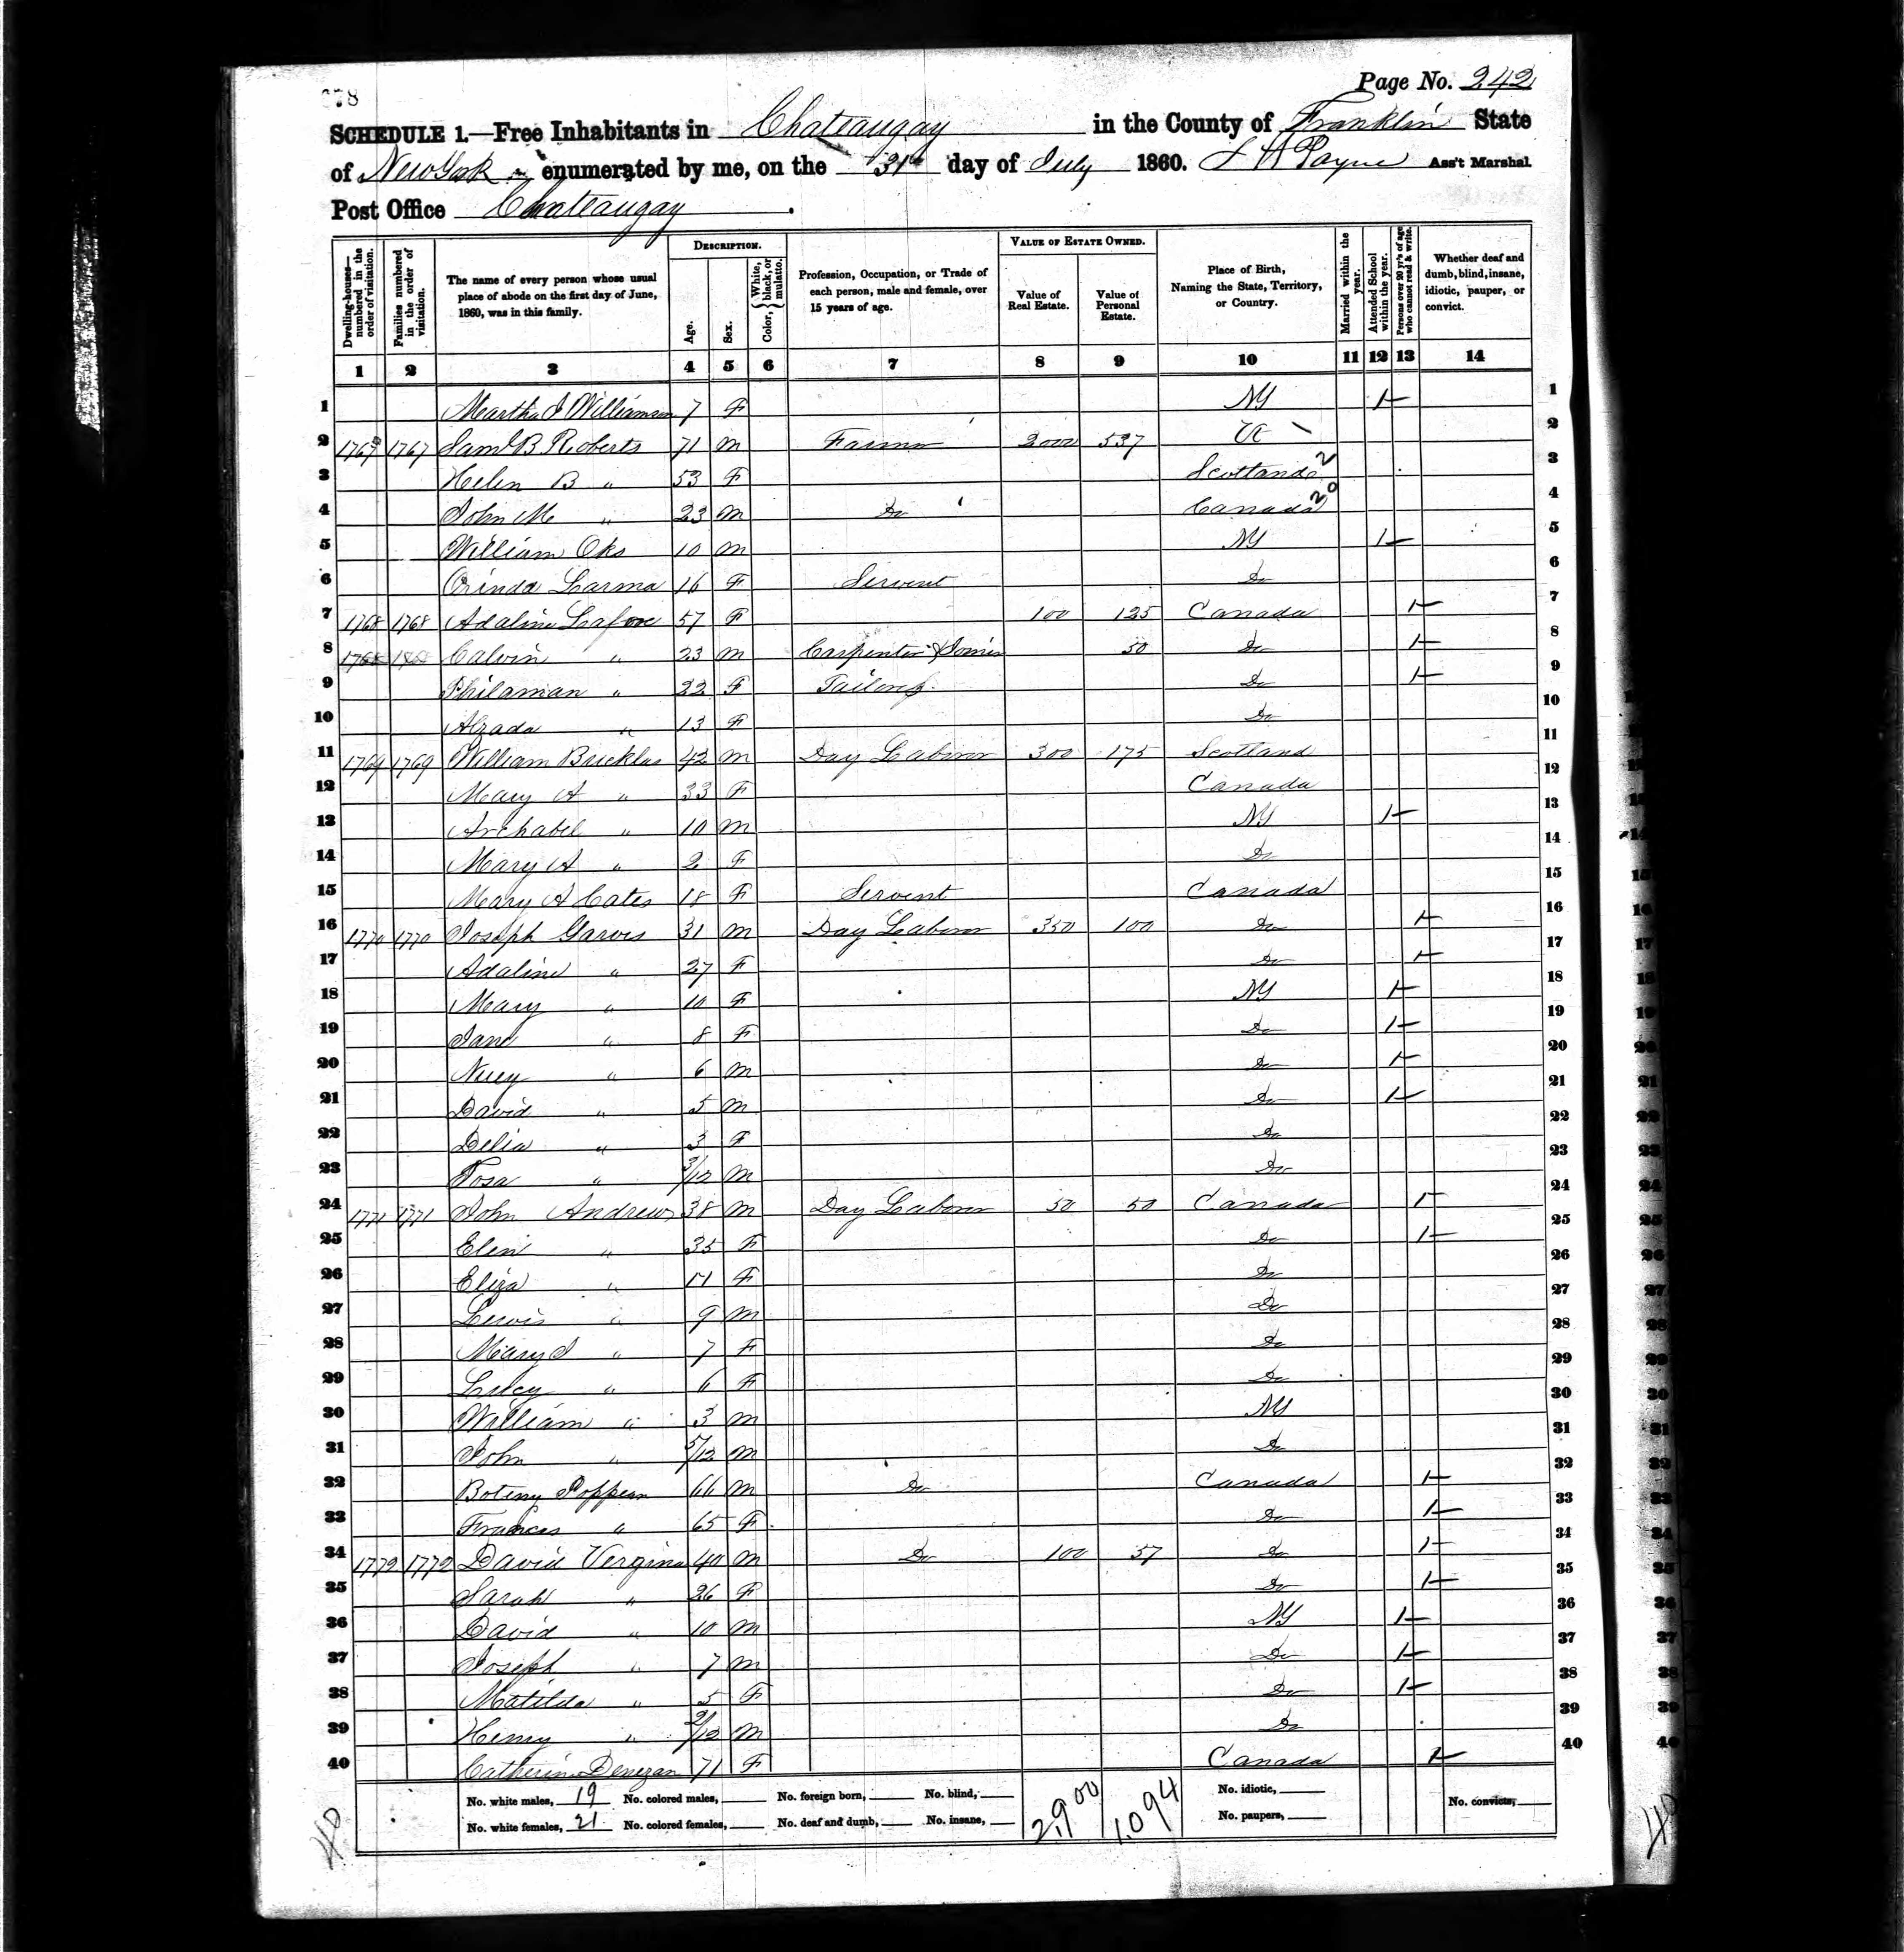 Page No. 242
SCHEDULE 1.—Free Inhabitants in Chateaugay in the County of Franklin State
of New York enumerated by me, on the 31st day of July 1860. Payne Ass't Marshal
Post Office Chateaugay.
DESCRIPTION. VALUE OF ESTATE OWNED.
Dwelling-houses—numbered in the order of visitation. Families numbered in the order of visitation. The name of every person whose usual place of abode on the first day of June, 1860, was in this family. Age. Sex. Color, {White, black, or mulatto. Profession, Occupation, or Trade of each person, male and female, over 15 years of age. Value of Real Estate. Value of Personal Estate. Place of Birth, Naming the State, Territory, or Country. Married within the year. Attended School within the year. Persons over 20 yr's of age who cannot read & write. Whether deaf and dumb, blind, insane, idiotic, pauper, or convict.
1 2 3 4 5 6 7 8 9 10 11 12 13 14
1 Martha J Williamson 7 F NY 1 1
2 1767 1767 Saml B Roberts 71 M Farmer 2000 537 Vt 2
3 Helen B " 53 F Scotland 3
4 John M " 23 M Do Canada 4
5 William Oks 10 M NY 1 5
6 Orinda Larma 16 F Servent Do 6
7 1768 1768 Adaline 57 F 100 125 Canada 1 7
8 Calvin " 23 M Carpenter & Joiner 50 Do 1 8
9 Philaman " 22 F Tailoress Do 1 9
10 " 13 F Do 10
11 1769 1769 William 42 M Day Laborer 300 175 Scotland 11
12 Mary A " 33 F Canada 12
13 Archabel " 10 M NY 1 13
14 Mary A " 2 F Do 14
15 Mary A Cates 18 F Servent Canada 15
16 1770 1770 Joseph Garvis 31 M Day Laborer 350 100 Do 1 16
17 Adaline " 27 F Do 1 17
18 Mary " 10 F NY 1 18
19 Jane " 8 F Do 1 19
20 " 6 M Do 1 20
21 David " 5 M Do 1 21
22 Delia " 3 F Do 22
23 " 3/12 M Do 23
24 1771 1771 John Andrews 38 M Day Laborer 50 50 Canada 1 24
25 Elen " 35 F Do 1 25
26 Eliza " 11 F Do 26
27 Lewis " 9 M Do 27
28 Mary J " 7 F Do 28
29 " 6 F Do 29
30 William " 3 M NY 30
31 John " 5/12 M Do 31
32 66 M Do Canada 1 32
33 Frances " 65 F Do 1 33
34 1772 1772 David Vergina 40 M Do 100 57 Do 1 34
35 Sarah " 26 F Do 1 35
36 David " 10 M NY 1 36
37 Joseph " 7 M Do 1 37
38 Matilda " 5 F Do 1 38
39 Henry " 2/12 M Do 39
40 Catherine 71 F Canada 1 40
No. white males, 19 No. colored males, No. foreign born, No. blind, 2,900 1,094 No. idiotic, No. convicts,
No. white females, 21 No. colored females, No. deaf and dumb, No. insane, No. paupers,
40